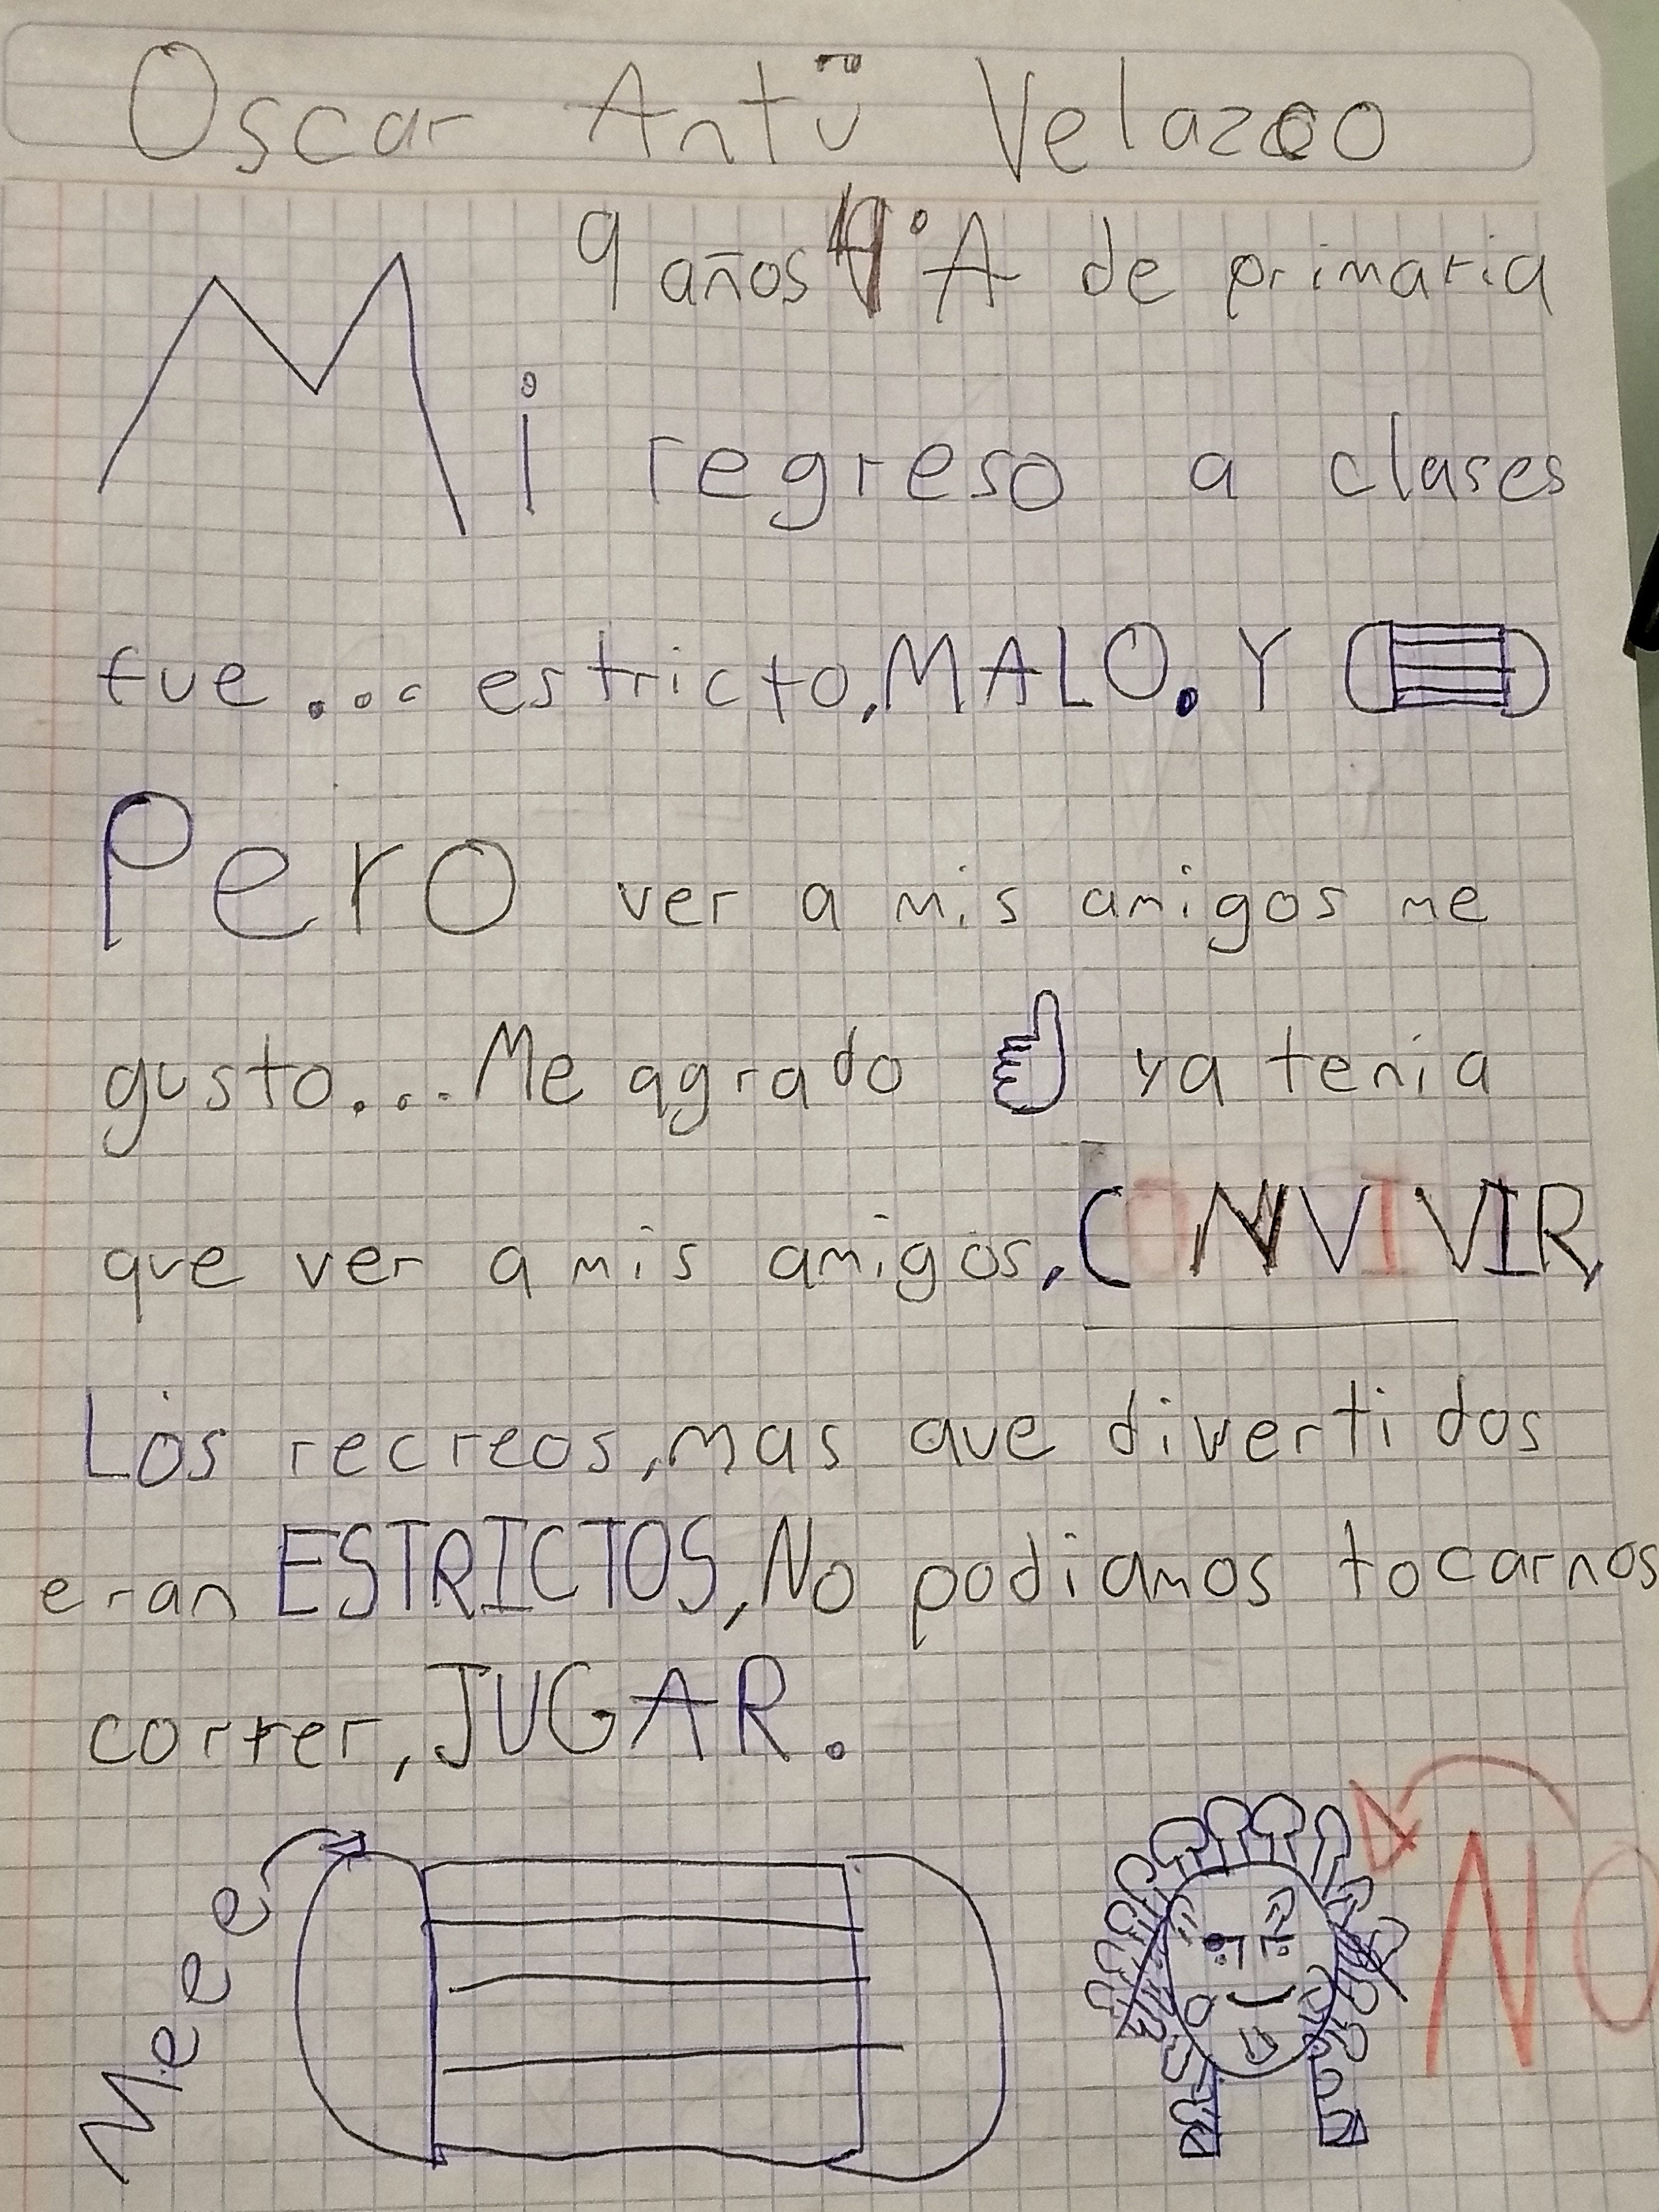 Oscar Antü Velazco
9 años 4°A de primaria
Mi regreso a clases
fue.... estricto, MALO. Y
Pero ver a mis amigos me
gusto... Me agrado ya tenia
que ver a mis amigos, CONVIVIR,
Los recreos, mas que divertidos
eran ESTRICTOS, No podiamos tocarnos
correr, JUGAR.
Meee
NO